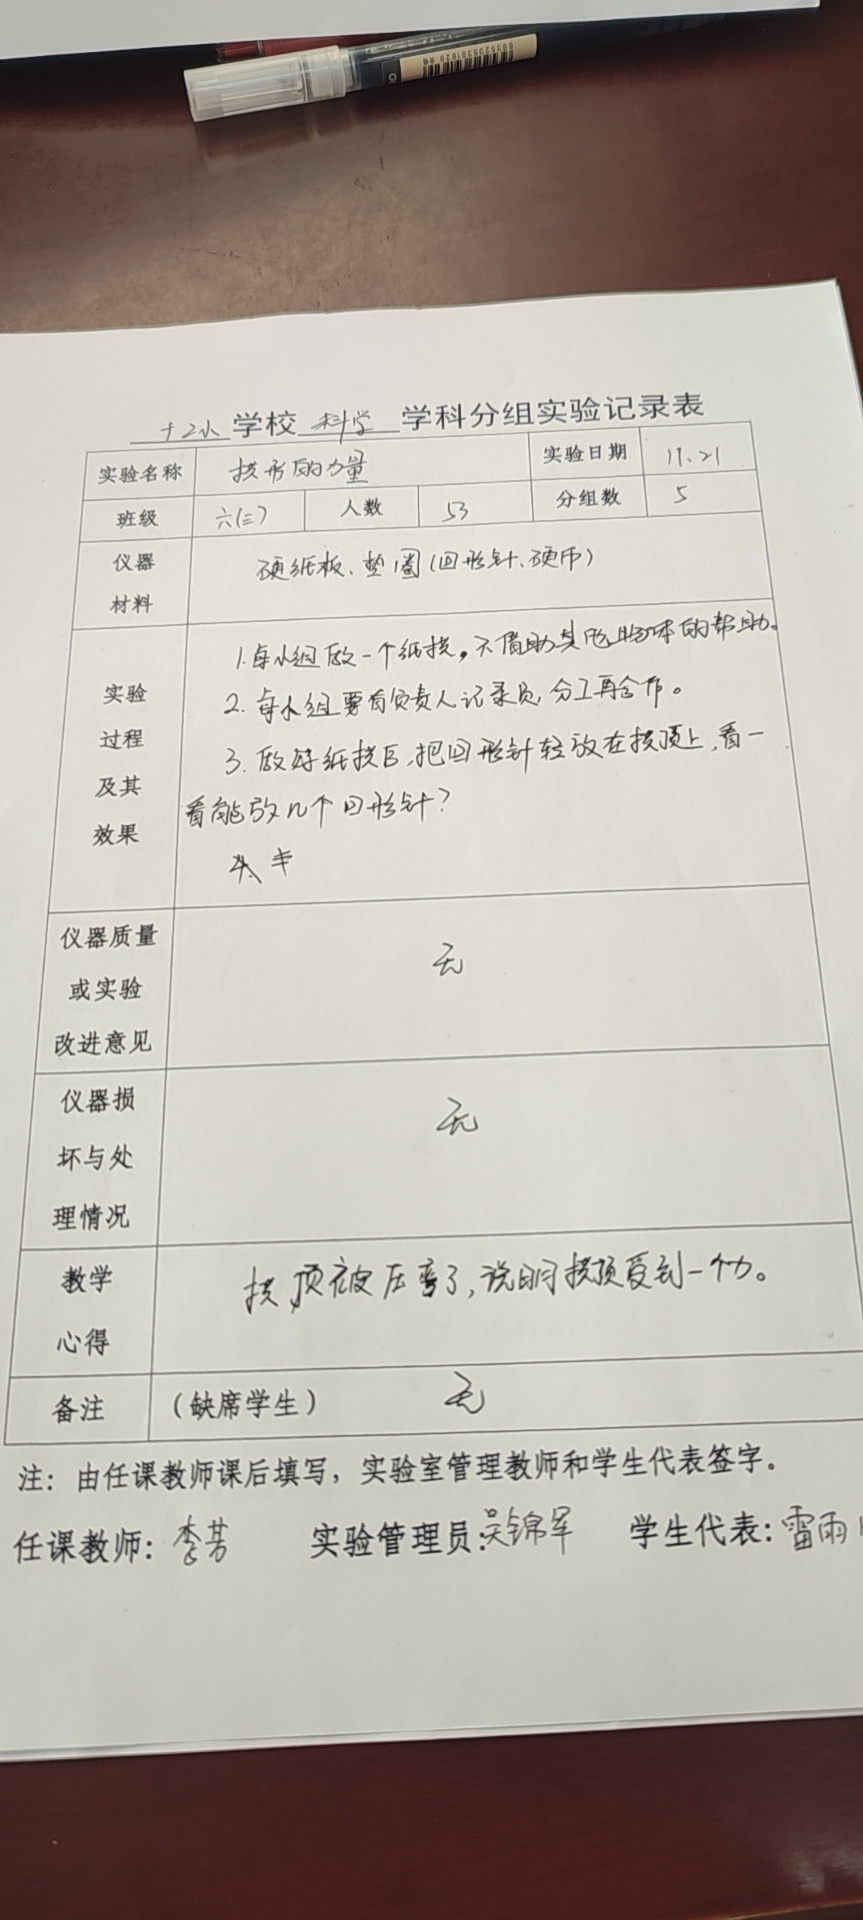 6935205391620
十二小 学校 科学 学科分组实验记录表
实验名称 拱形的力量 实验日期 11.21
班级 六(三) 人数 53 分组数 5
仪器材料 硬纸板、垫圈(回形针、硬币)
实验过程及其效果
1.每小组做一个纸拱,不借助其他物体的帮助。
2.每小组要有负责人记录员,分工再合作。
3.做好纸拱后,把回形针轻放在拱顶上,看一
看能放几个回形针?
仪器质量或实验改进意见 无
仪器损坏与处理情况 无
教学心得 拱顶被压弯了,说明拱顶受到一个力。
备注 (缺席学生) 无
注:由任课教师课后填写,实验室管理教师和学生代表签字。
任课教师:李芳 实验管理员:吴锦军 学生代表:雷雨